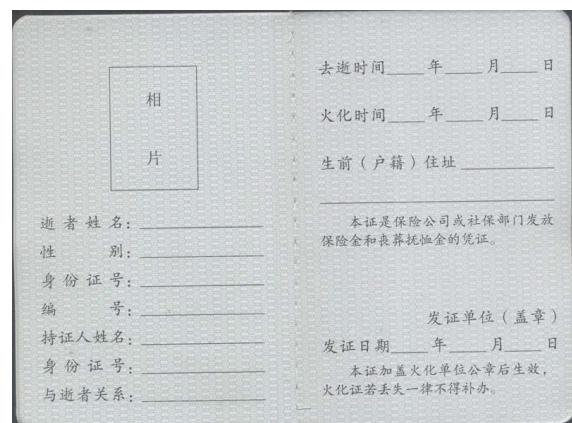 相
片
逝者姓名:
性别:
身份证号:
编号:
持证人姓名:
身份证号:
与逝者关系:
去逝时间____年____月____日
火化时间____年____月____日
生前(户籍)住址
本证是保险公司或社保部门发放
保险金和丧葬抚恤金的凭证。
发证单位(盖章)
发证日期____年____月____日
本证加盖火化单位公章后生效,
火化证若丢失一律不得补办。